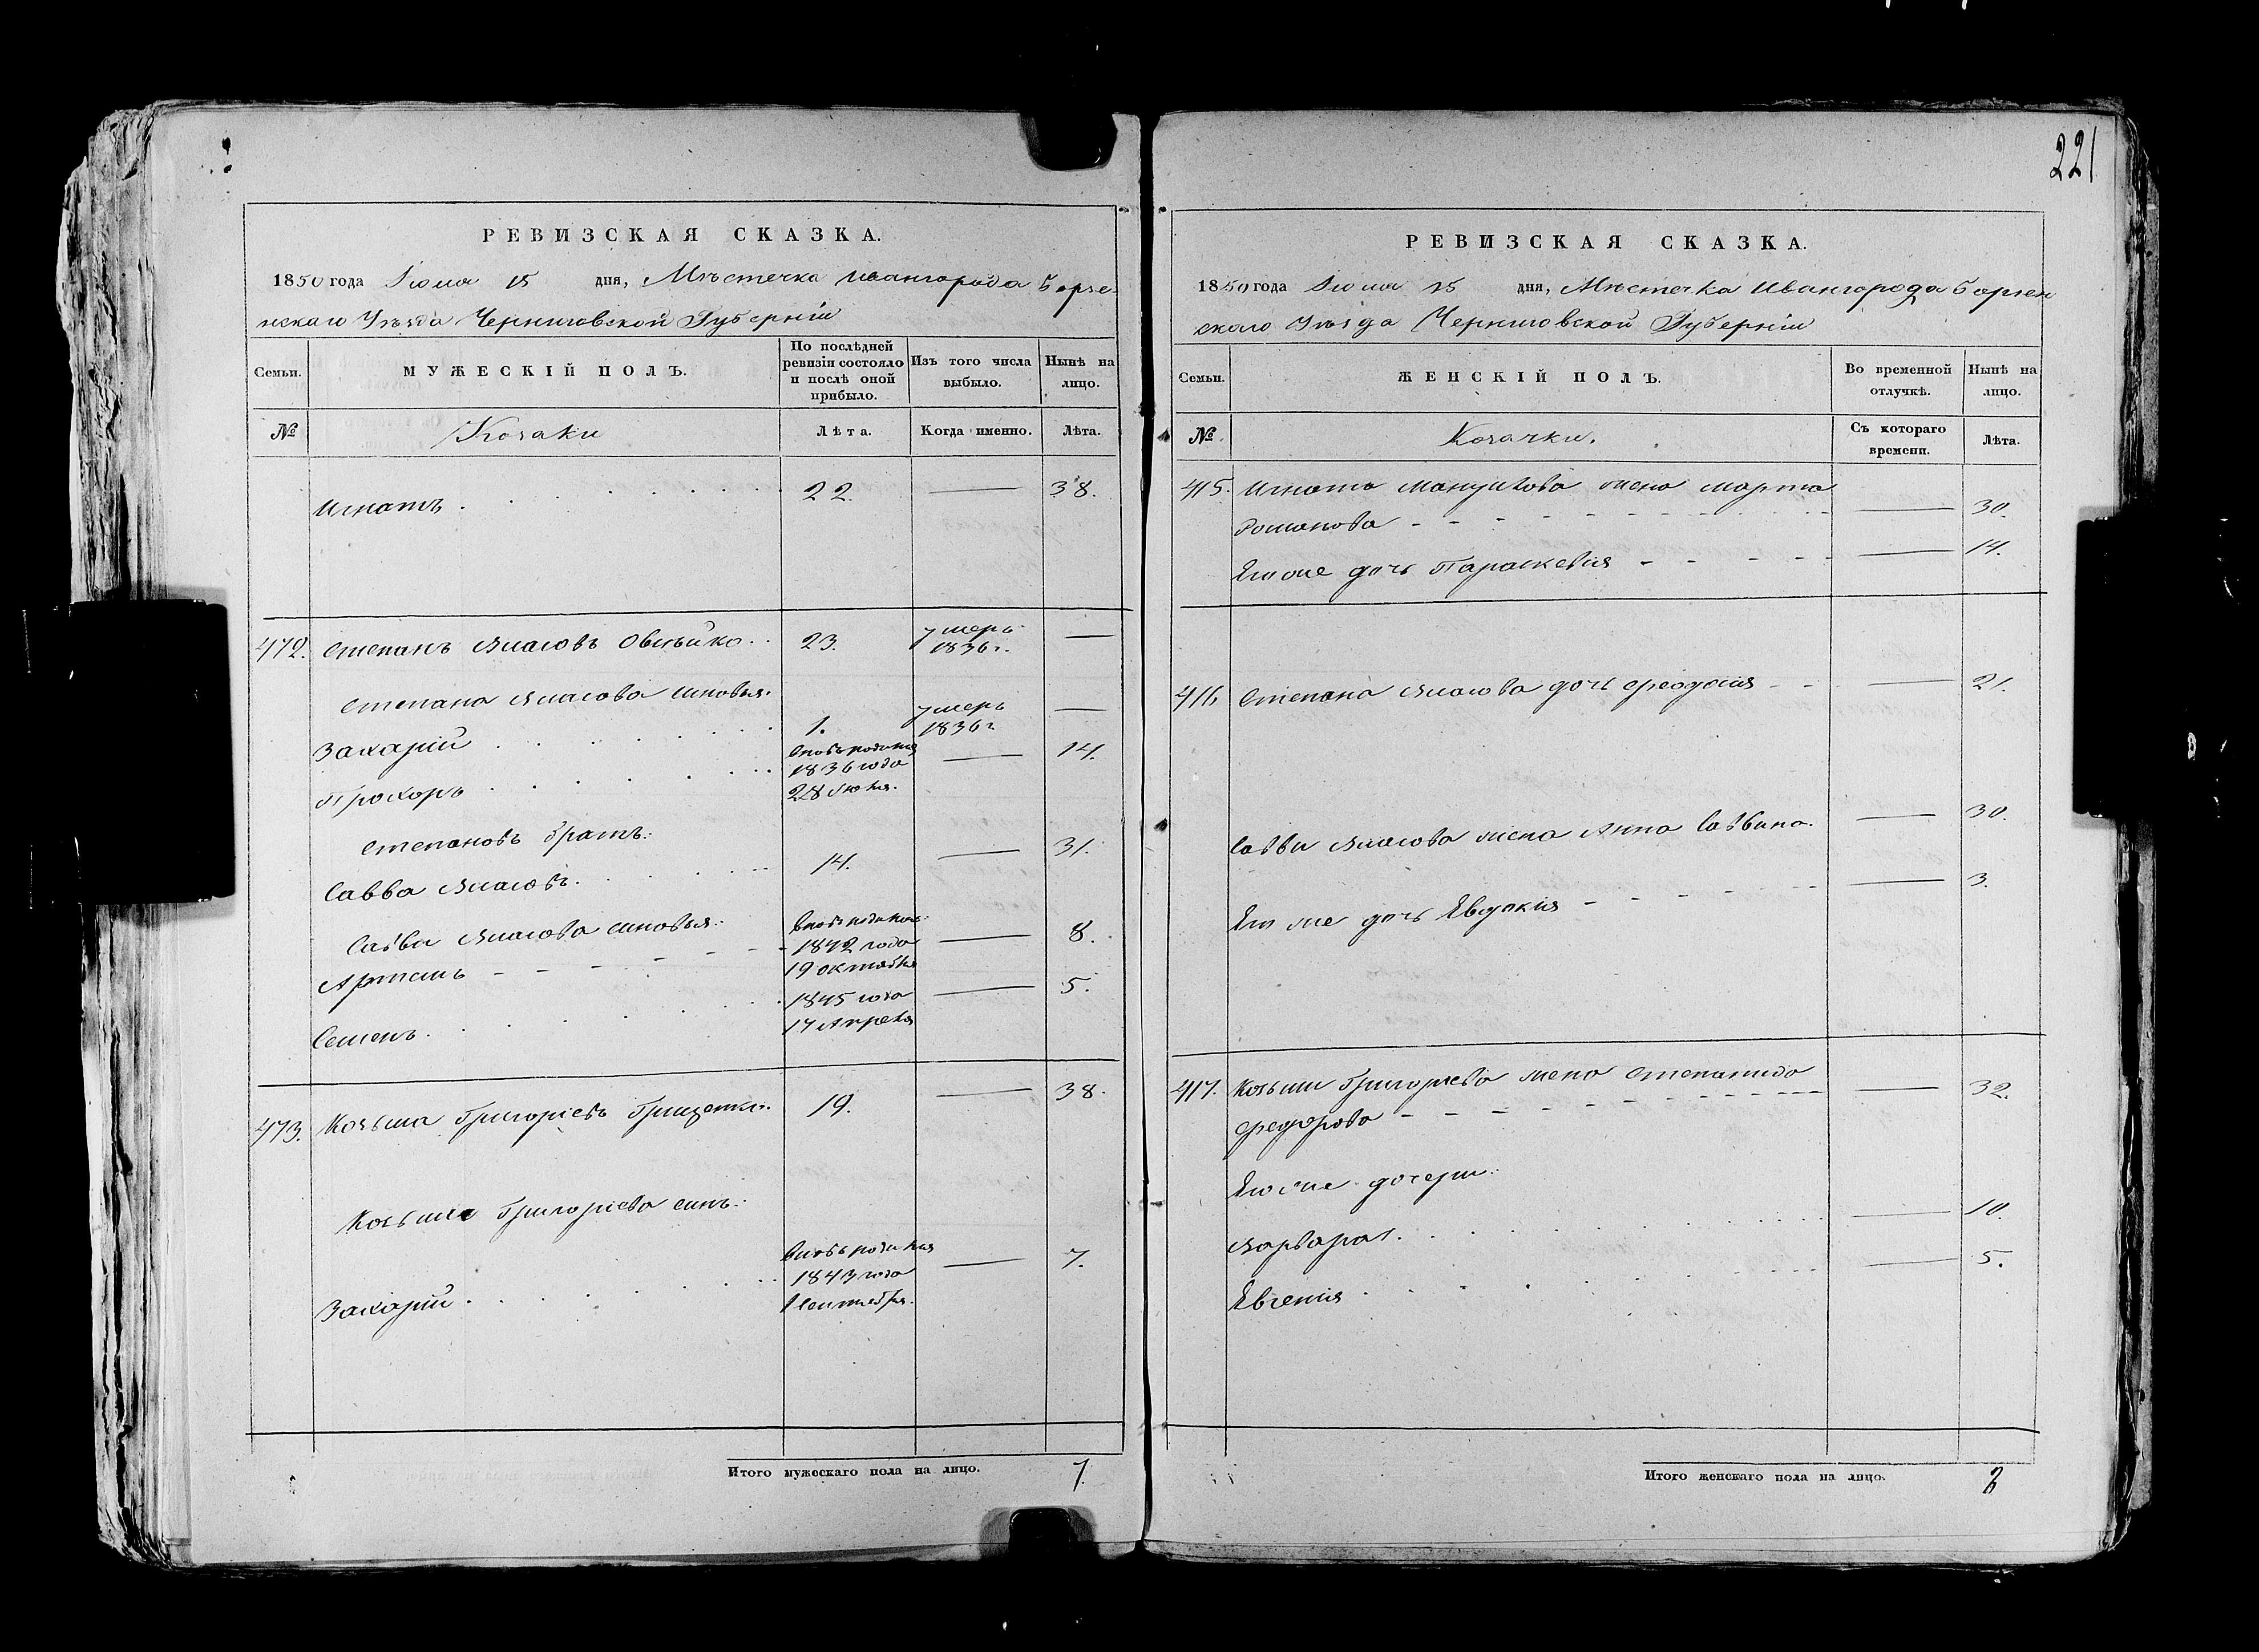 221
РЕВИЗСКАЯ СКАЗКА.
1850 года Іюля 15 дня, Мѣстечка Ивангорода Борзе-
нскаго Уѣзда Черниговской Губерніи
Семьи.
МУЖЕСКІЙ ПОЛЪ.
По послѣдней ревизіи состояло и послѣ оной прибыло.
Изъ того числа выбыло.
Нынѣ на лицо.
№
Козаки
Лѣта.
Когда именно.
Лѣта.
Игнатъ 22. — 38.
472. Степанъ Власовъ Овсѣйко 23. умеръ 1836 г. —
Степана Власова сыновья:
Захарій 1. умеръ 1836 г —
Прохоръ вновь рожденъ 1836 года 28 Іюня. — 14.
Степановъ братъ:
Савва Власовъ 14. — 31.
Саввы Власова сыновья:
Артемъ 1842 года 19 октября — 8.
Семенъ 1845 года 17 Апреля — 5.
473. Козьма Григорьевъ Грищенко 19. — 38.
Козьмы Григорьева сынъ:
Захарій 1843 года 1 сентября. — 7.
Итого мужескаго пола на лицо. 7.
РЕВИЗСКАЯ СКАЗКА.
1850 года Іюля 15 дня, Мѣстечка Ивангорода Борзен
скаго Уѣзда Черниговской Губерніи
Семьи.
ЖЕНСКІЙ ПОЛЪ.
Во временной отлучкѣ.
Нынѣ на лицо.
№
Козачки.
Съ котораго времени.
Лѣта.
415. Игната жена Марта
Романова — 30.
Его же дочь Параскевія — 14.
416 Степана Власова дочь Феодосія — 21.
Саввы Власова жена Анна Саввина — 30.
Его же дочь Евдокія — 3.
417. Козьмы Григорьева жена Степанида
Федорова — 32.
Его же дочери:
Варвара — 10.
Евгенія — 5.
Итого женскаго пола на лицо.